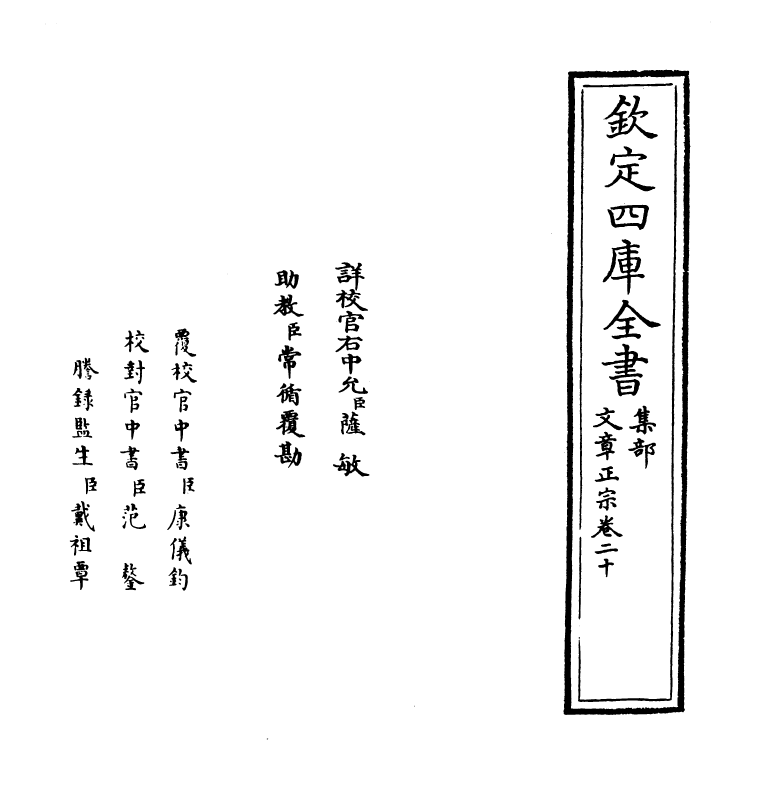 欽定四庫全書
集部
文章正宗卷二十
詳校官右中允臣薩敏
助教臣常循覆勘
覆校官中書臣康儀鈞
校對官中書臣范鏊
謄録監生臣戴祖覃